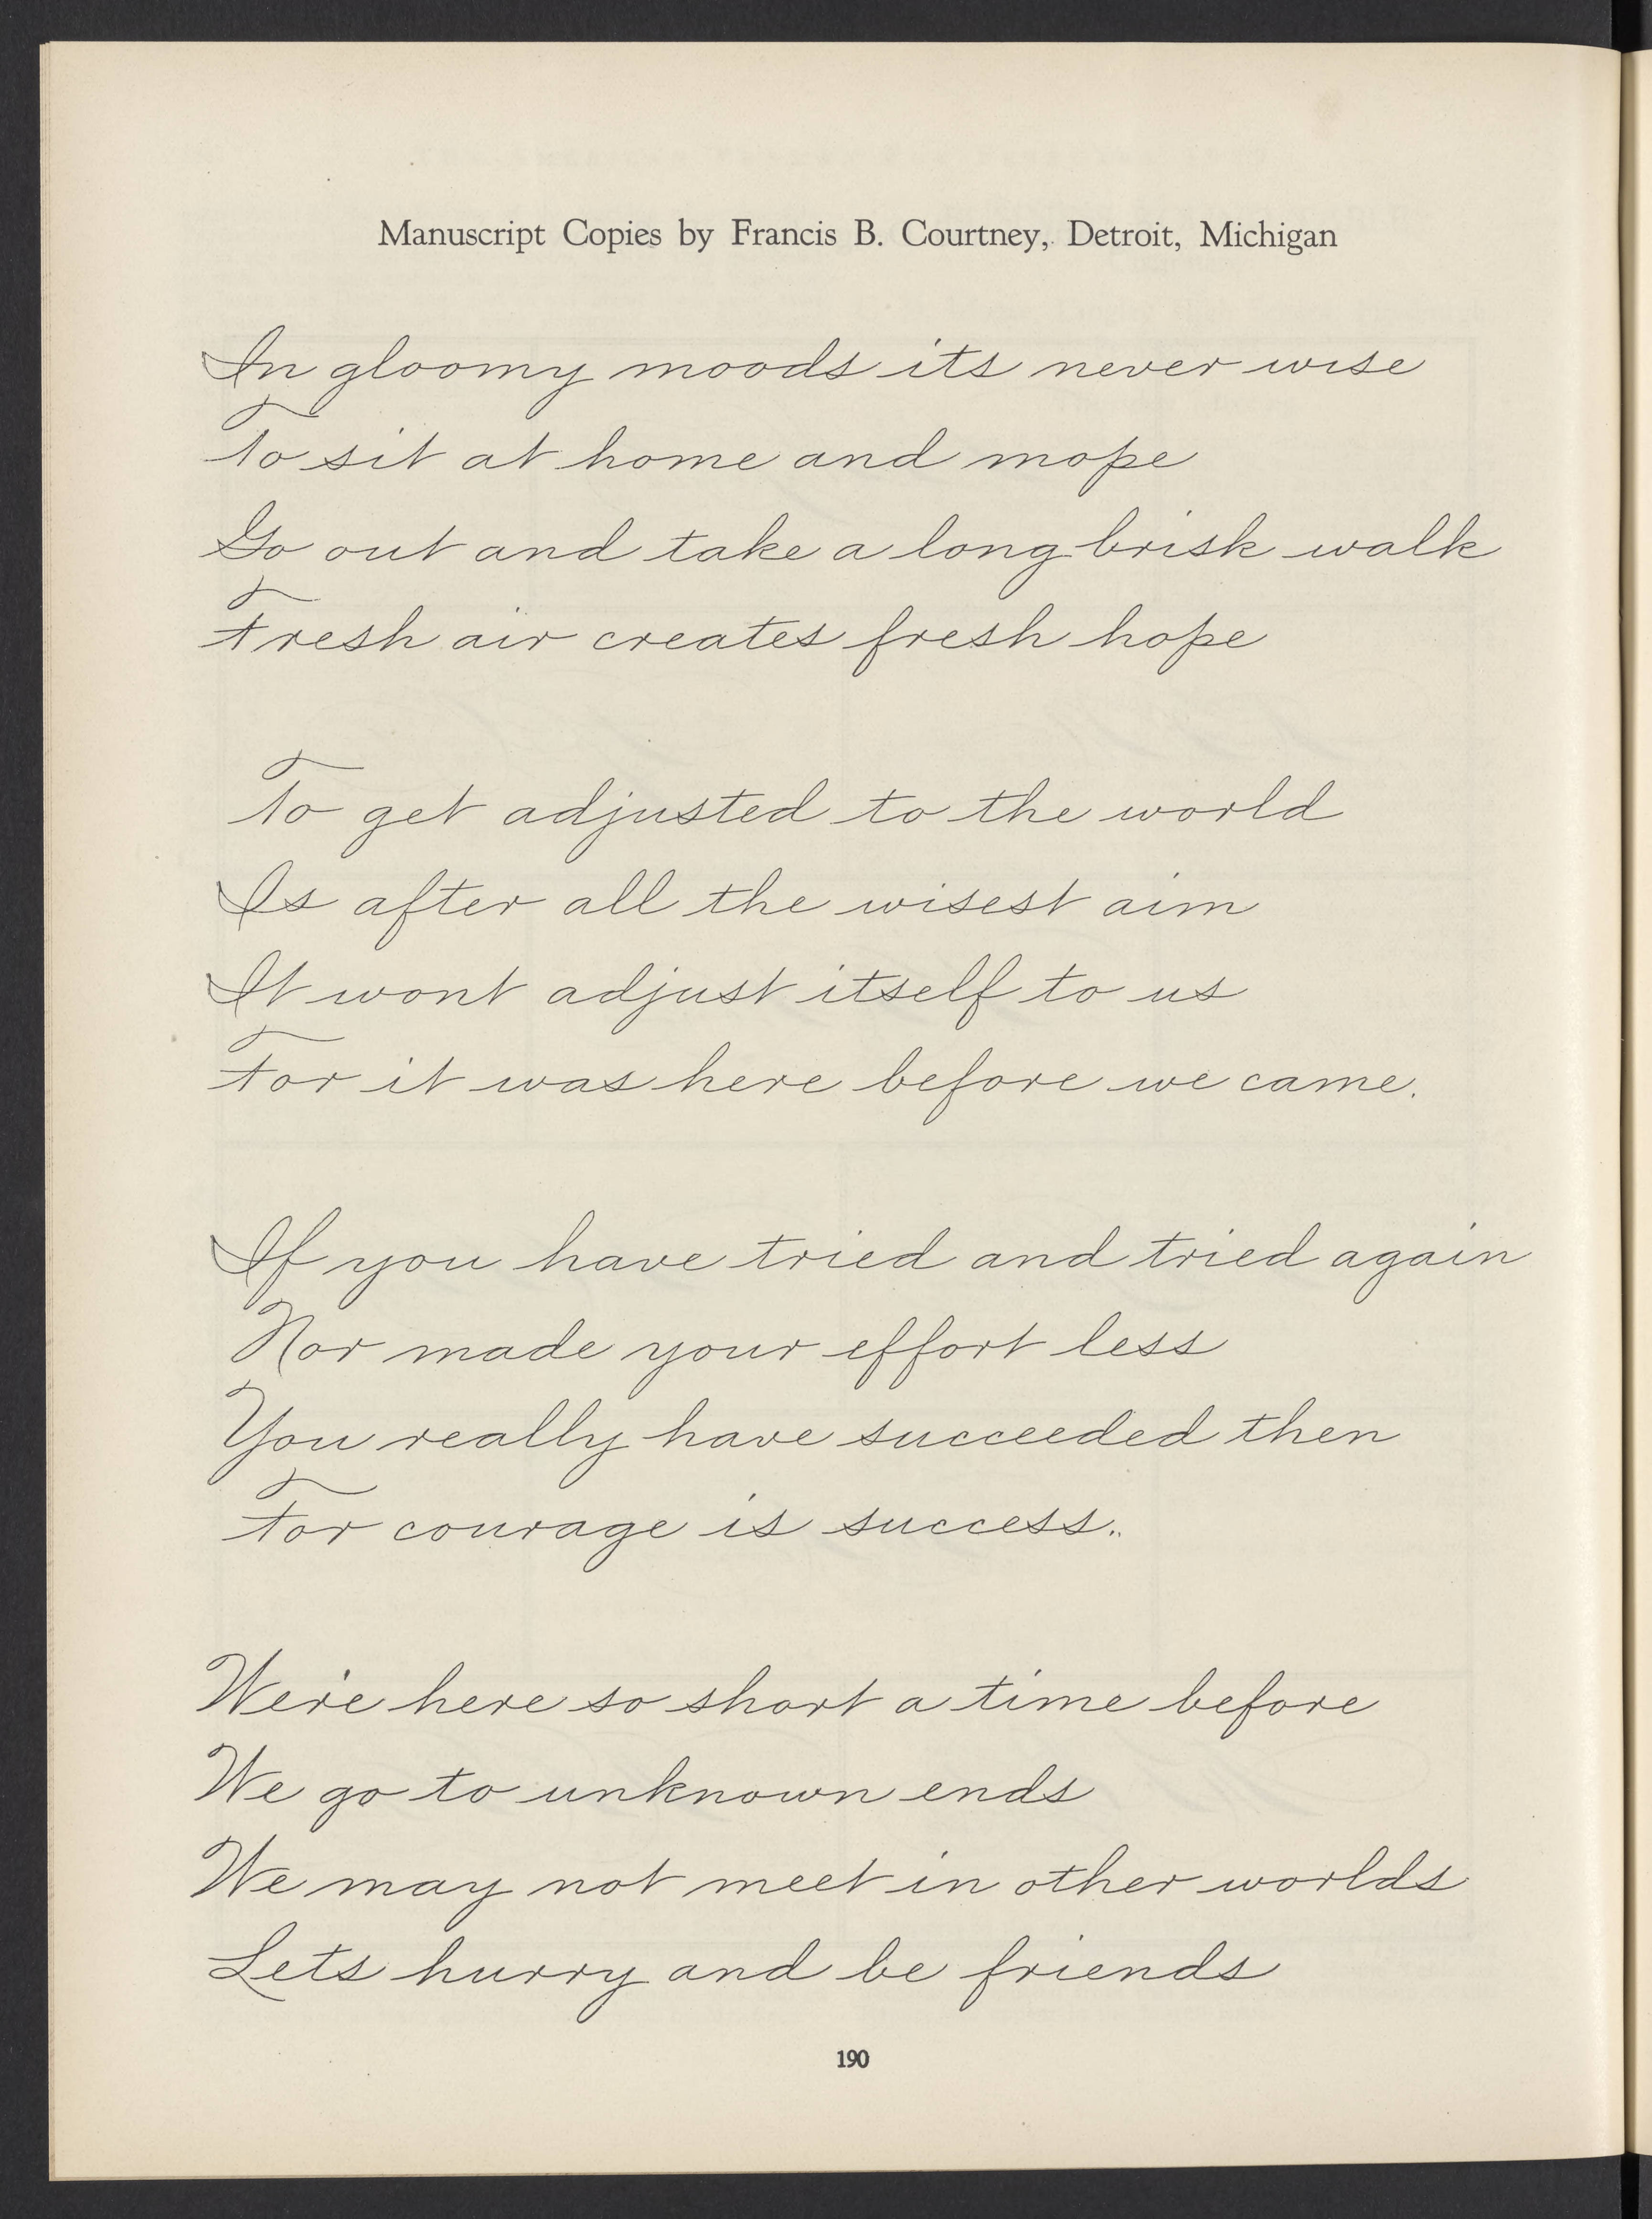 Manuscript Copies by Francis B. Courtney, Detroit, Michigan
In gloomy moods its never wise
To sit at home and mope
Go out and take a long brisk walk
Fresh air creates fresh hope
To get adjusted to the world
Is after all the wisest aim
It wont adjust itself to us
For it was here before we came.
If you have tried and tried again
Nor made your effort less
You really have succeeded then
For courage is success..
We're here so short a time before
We go to unknown ends
We may not meet in other worlds
Lets hurry and be friends
190